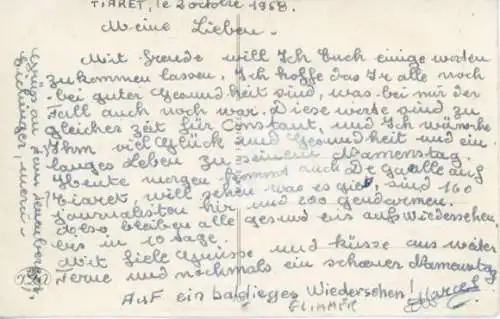 TIARET, le 2 octobre 1958.
Meine Lieben.
Mit freude will Ich Euch einige worten
zukommen lassen. Ich hoffe das Ir alle noch
bei guter Gesundheit sind, was bei mir der
Fall auch noch war. Diese worte sind zu
gleicher zeit für Constant, und Ich wünsche
Ihm viel Glück und Gesundheit und ein
langes Leben zu seinem Namenstag.
Heute morgen kommt auch De Gaulle auf
Tiaret, will sehen was es gibt, sind 160
Journalisten hir und 200 Gendarmen.
Also, bleiben alle gesund bis auf Wiedersehen
bis in 10 Tage.
Mit viele Grüsse und küsse aus weiter
Ferne und nochmals ein schöner Namenstag
Auf ein baldieges Wiedersehen!
Marcel